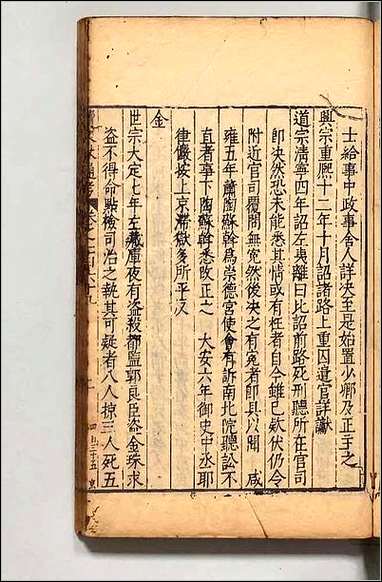 士給事中政事舍人詳决至是始置少卿及正主之
興宗重熙十二年十月詔諸路上重囚遣官詳讞
道宗清寧四年詔左夷离曰比詔前路死刑聽所在官司
即决然恐未能悉其情或有枉者自今雖已欵伏仍令
附近官司覆問無寃然後决之有寃者即具以聞 咸
雍五年蕭陶蘇斡爲崇德宮使會有訴南北院聽訟不
直者事下陶蘇斡悉改正之 大安六年御史中丞耶
律儼按上京滯獄多所平反
金
世宗大定七年左藏庫夜有盗殺都監郭良臣盗金珠求
盗不得命點檢司治之執其可疑者八人掠三人死五
通考 卷之一百六十九